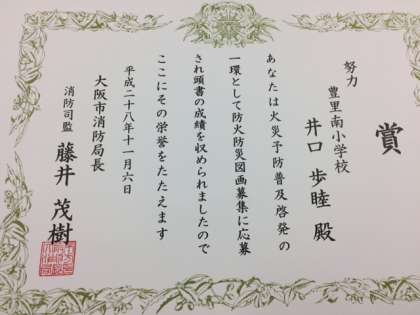 賞
努力
豊里南小学校
井口 歩睦 殿
あなたは火災予防普及啓発の
一環として防火防災図画募集に応募
され頭書の成績を収められましたので
ここにその栄誉をたたえます
平成二十八年十一月六日
大阪市消防局長
消防司監 藤井 茂樹